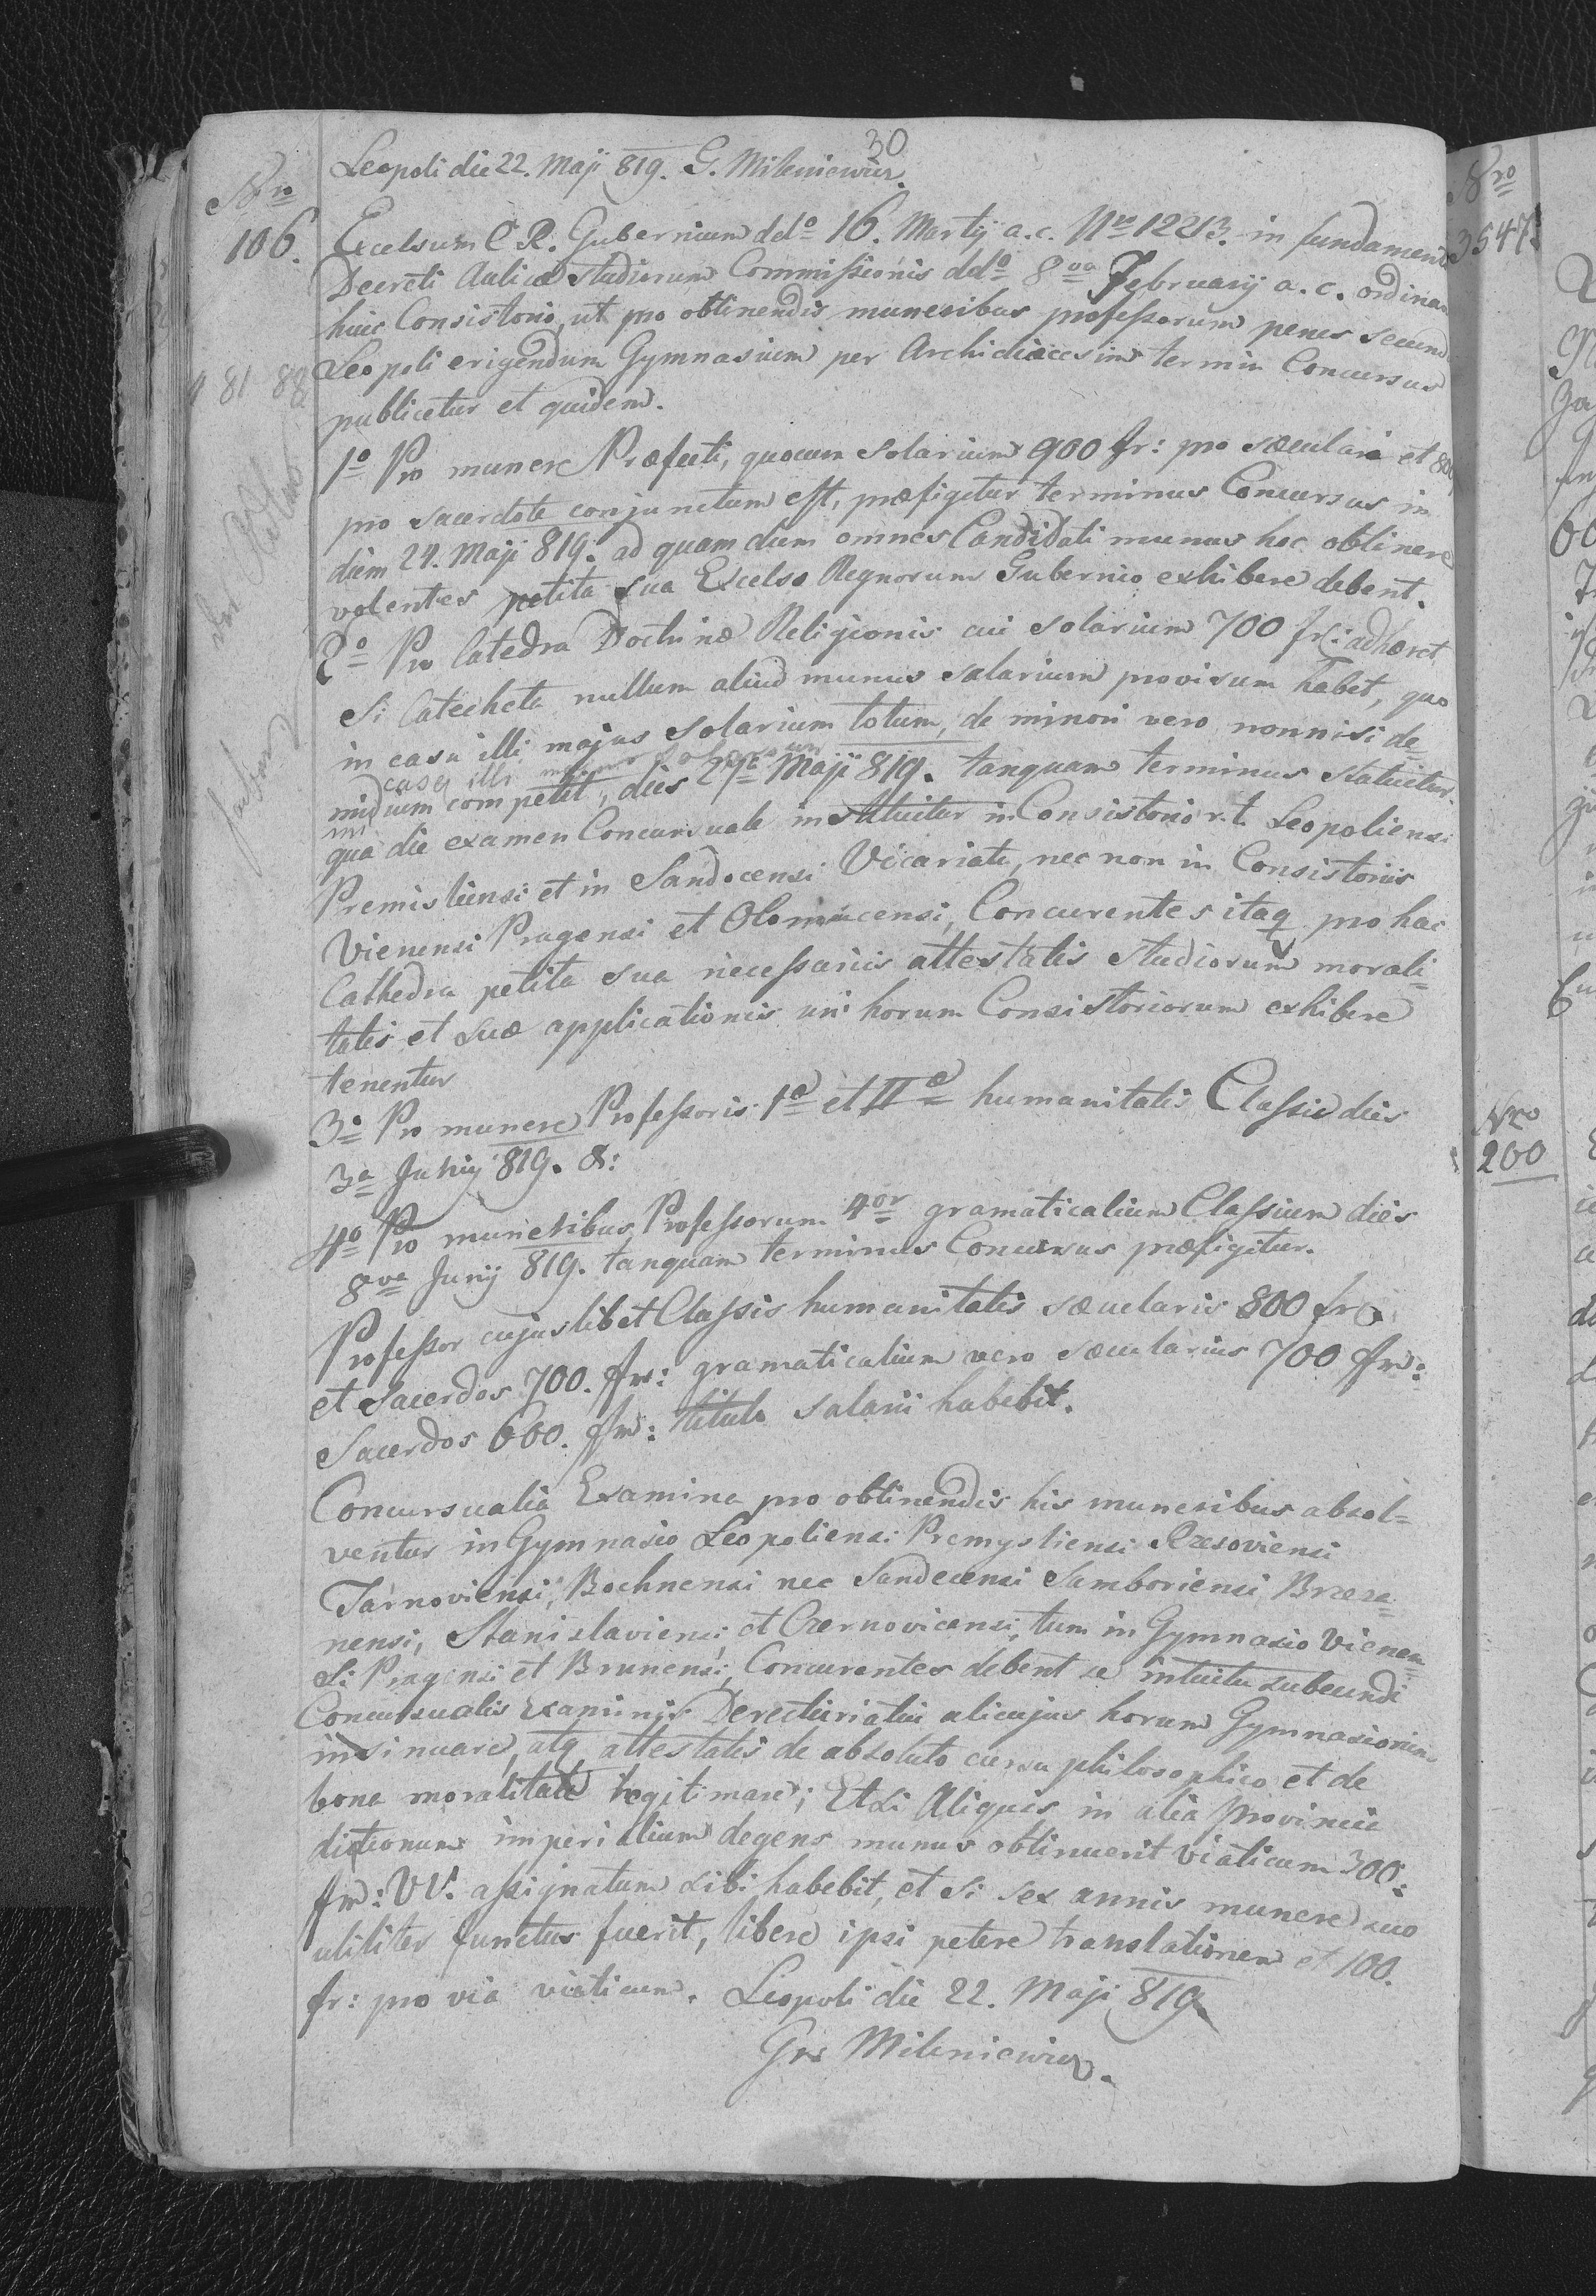 30
Leopoli die 22. Maji 819. G. Mileniewicz.
Nro
106.
Excelsum C. R. Gubernium ddo 16. Martÿ a. c. Nro 12213. in fundamen
Decreti Aulicæ studiorum Commissionis ddo 8va Februarÿ a. c. ordina
huic Consistorio, ut pro obtinendis muneribus professorum penes secund
Leopoli erigendum Gymnasium per Archidiæcesim termin Concursus
publicetur et quidem.
1o Pro munere Præfecti, quocum solarium 900 fr: pro sæculari et 800
pro sacerdote conjunctum est, præfigitur terminus Concursus in
diem 24. Maji 819. ad quam diem omnes Candidati munus hoc obtinere
volentes petita sua Excelso Regnorum Gubernio exhibere debent.
2o Pro Catedra Doctrinæ Religionis cui solarium 700 fr: adhæret
Si Catecheta nullum aliud munus salarium provisum habet, quo
in casu illi majus solarium totum, de minori vero nonnisi de
casu illi
midium competit, dies 27ma Maji 819. tanquam terminus statuitur
qua die examen Concursuale instituitur in Consistorio r. l. Leopoliensi
Premisliensi et in Sandecensi Vicariatu, nec non in Consistoriis
Vienensi Pragensi et Olomucensi, Concurentes itaq pro hac
Cathedra petita sua necessariis attestatis studiorum morali=
tatis et suæ applicationis uni horum Consistoriorum exhibere
tenentur
3o Pro munere Professoris 1a et IIa humanitatis Classis dies
3a Junÿ 819. &:
4o Pro muneribus Professorum 4or gramaticalium Classium dies
8va Junÿ 819. tanquam terminus Concursus præfigitur.
Professor cujuslibet Classis humanitatis sæcularis 800 fr:
et Sacerdos 700. fr: gramaticalium vero sæcularius 700 fr:
Sacerdos 600. fr: titulo salarii habebit.
Concursualia Examina pro obtinendis his muneribus absol=
ventur in Gymnasio Leopoliensi Premysliensi Rzesoviensi
Tarnoviensi, Bochnensi nec Sandecensi Samboriensi Brzeza=
nensi, Stanislaviensi, et Czernovicensi, tum in Gymnasio Vienen=
si Pragensi et Brunensi, Concurentes debent se intuitu subeundi
Concursualis Examinis Derectuiriatui alicujus horum Gymnasiorum
insinuare, atq attestatis de absoluto cursu philosophico et de
bona moralitate legitimare; Et si Aliquis in alia Provincia
ditionum imperialium degens munus obtinuerit viaticum 300:
fr: VV. assignatum sibi habebit, et si sex annis munere suo
utiliter functus fuerit, libere ipsi petere translationem et 100.
fr: pro via viaticum. Leopoli die 22. Maji 819
Gr Mileniewicz.
Nro
3547.
Nro
200